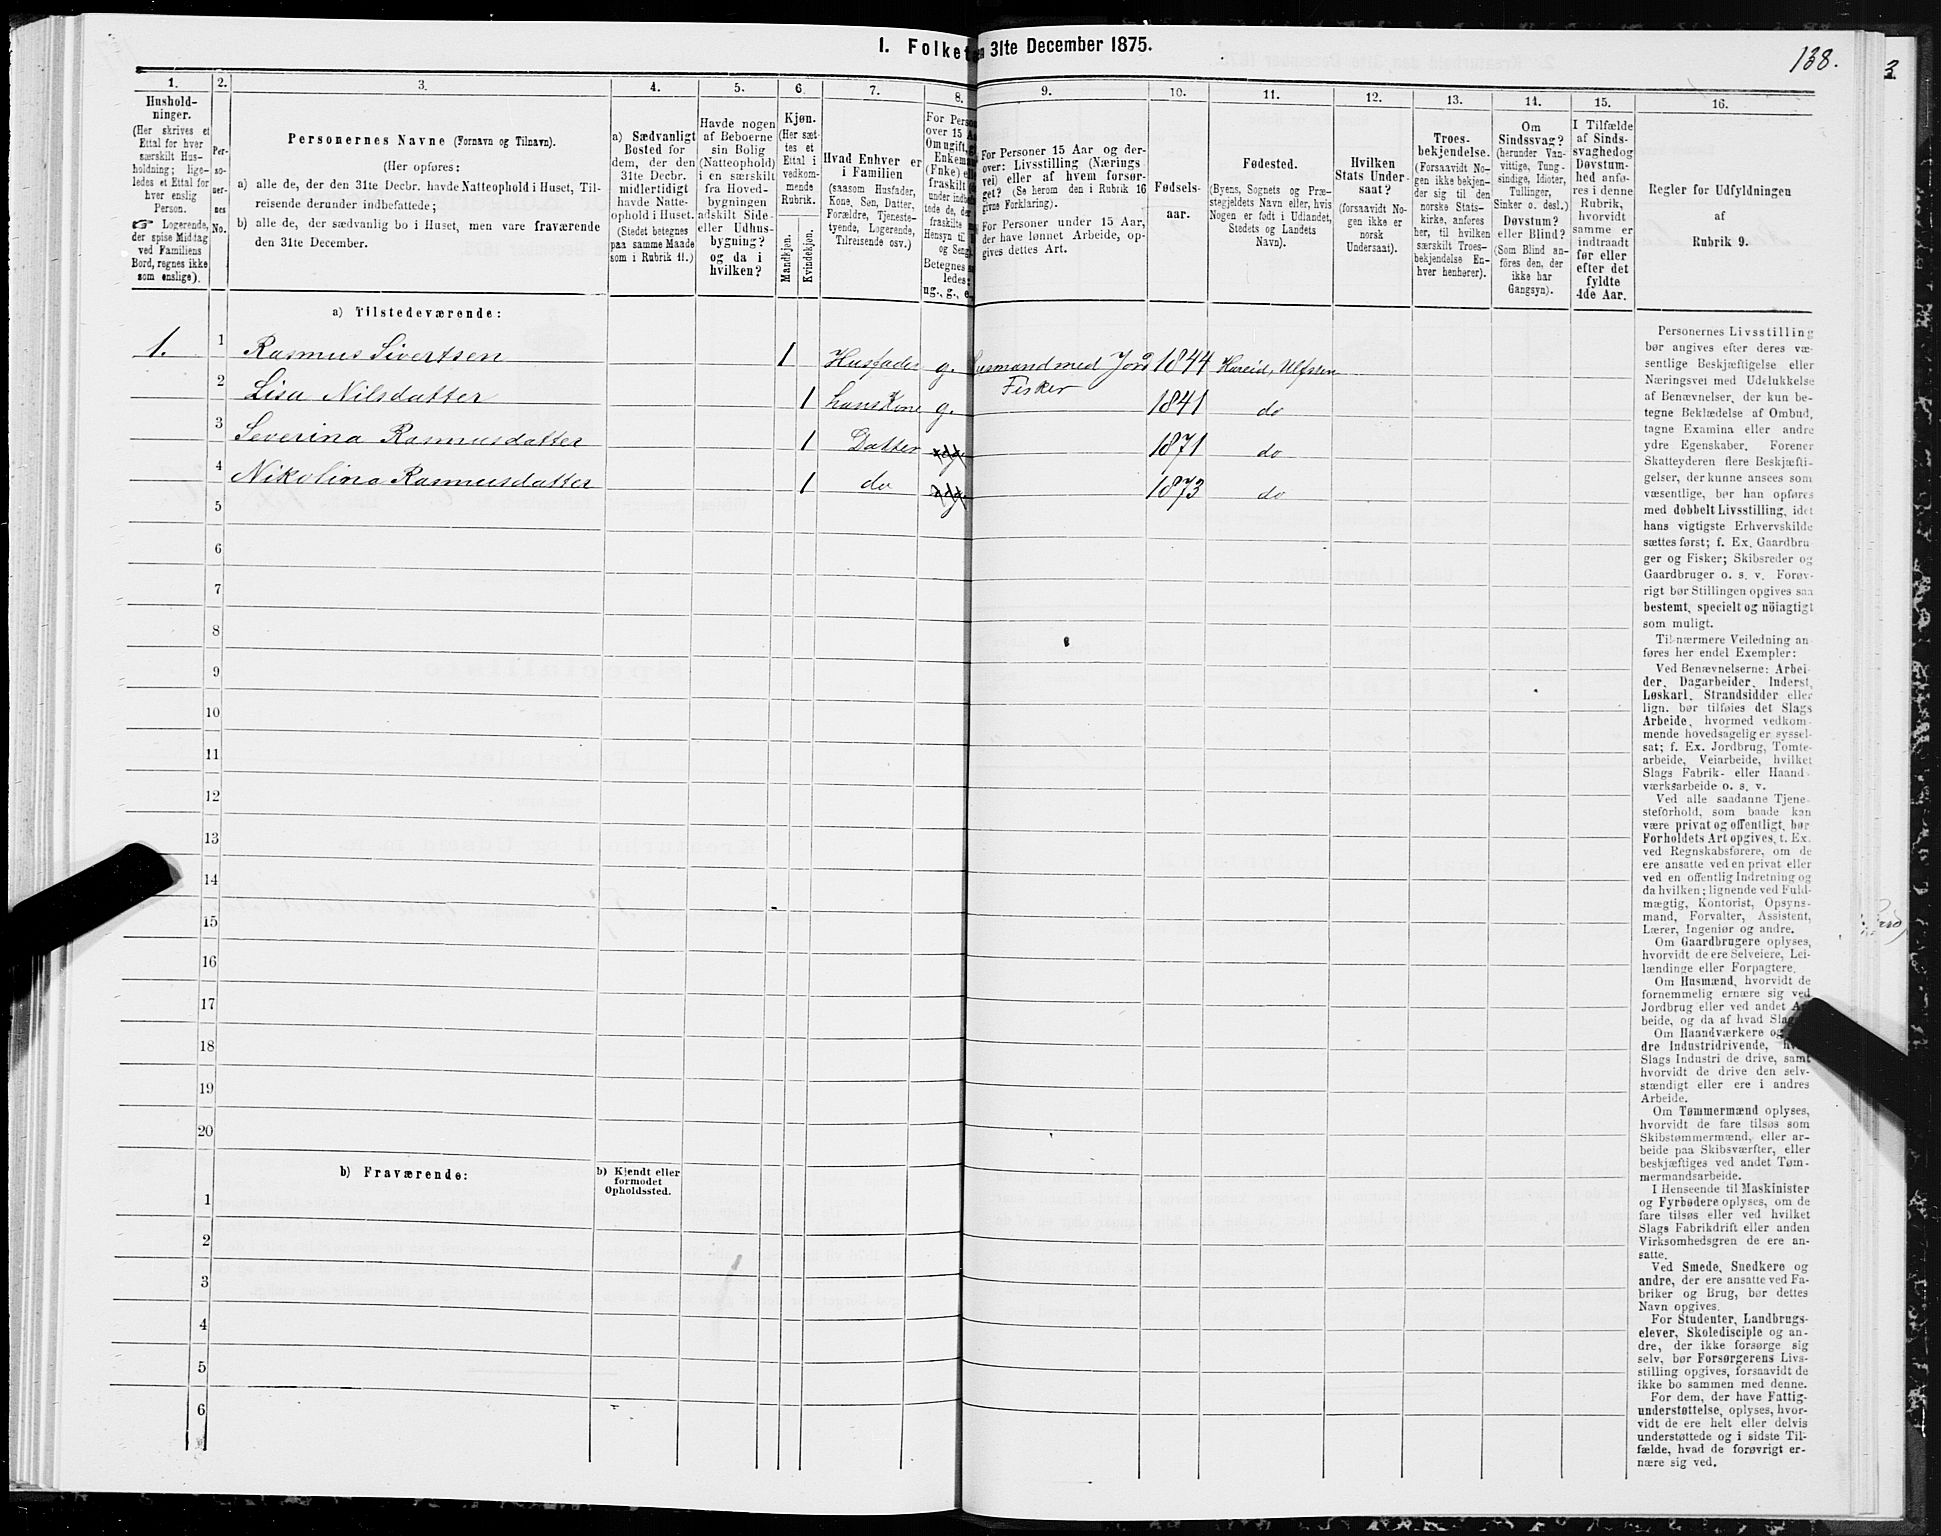 I. Folket n 31te December 1875.
138.
3
1.
Hushold-
ninger.
(Her skrives et
Ettal for hver
særskilt Hus-
holdning; lige-
ledes et Ettal for
hver enslig
Person.
☞ Logerende,
der spise Middag
ved Familiens
Bord, regnes ikke
som enslige).
2.
Per-
so-
ner-
nes
No.
3.
Personernes Navne (Fornavn og Tilnavn).
(Her opføres:
a) alle de, der den 31te Decbr. havde Natteophold i Huset, Til-
reisende derunder indbefattede;
b) alle de, der sædvanlig bo i Huset, men vare fraværende
den 31te December.
4.
a) Sædvanligt
Bosted for
dem, der den
31te Decbr.
midlertidigt
havde Natte-
ophold i Huset.
(Stedet betegnes
paa samme Maade
som i Rubrik 11.)
5.
Havde nogen
af Beboerne
sin Bolig
(Natteophold)
i en særskilt
fra Hoved-
bygningen
adskilt Side-
eller Udhus-
bygning?
og da i
hvilken?
6.
Kjøn.
(Her sæt-
tes et
Ettal i
vedkom-
mende
Rubrik.
Mandkjøn.
Kvindekjøn.
7.
Hvad Enhver er
i Familien
(saasom Husfader,
Kone, Søn, Datter,
Forældre, Tjeneste-
tyende, Logerende,
Tilreisende osv.)
8.
For Perso
over 15 Aa
Om ugift, g
Enkema
(Enke) ell
fraskilt
under indb
tede de, de
fraskilte
Hensyn til
og Seng
Betegnes
ledes:
ug., g., e.
9.
For Personer 15 Aar og der-
over: Livsstilling (Nærings-
vei) eller af hvem forsør-
get? (Se herom den i Rubrik 16
givne Forklaring).
For Personer under 15 Aar,
der have lønnet Arbeide, op-
gives dettes Art.
10.
Fødsels-
aar.
11.
Fødested.
(Byens, Sognets og Præ-
stegjeldets Navn eller, hvis
Nogen er født i Udlandet,
Stedets og Landets
Navn).
12.
Hvilken
Stats Under-
saat?
(forsaavidt No-
gen ikke er
norsk
Undersaat).
13.
Troes-
bekjendelse.
(Forsaavidt No-
gen ikke bekjen-
der sig til den
norske Stats-
kirke, anføres
her, til hvilken
særskilt Troes-
bekjendelse En-
hver henhører).
14.
Om
Sindssvag?
(herunder Van-
vittige, Tung-
sindige, Idioter,
Tullinger,
Sinker o. desl.)
Døvstum?
eller Blind?
(Som Blind an-
føres den, der
ikke har
Gangsyn).
15.
I Tilfælde
af Sinds-
svaghed og
Døvstum-
hed anfø-
res i denne
Rubrik,
hvorvidt
samme er
indtraadt
før eller
efter det
fyldte
4de Aar.
16.
Regler for Udfyldningen
af
Rubrik 9.
a) Tilstedeværende:
1. 1 Rasmus Sivertsen 1 Husfader g. Husmand med Jord 1844 Hareid, Ulfsten
Fisker
2 Lisa Nilsdatter 1 hans Kone g. 1841 do
3 Severina Rasmusdatter 1 Datter 1871 do
4 Nikolina Rasmusdatter 1 do 1873 do
5
6
7
8
9
10
11
12
13
14
15
16
17
18
19
20
b) Fraværende:
b) Kjendt eller
formodet
Opholdssted.
1
2
3
4
5
6
Personernes Livsstilling
bør angives efter deres væ-
sentlige Beskjæftigelse eller
Næringsvei med Udelukkelse
af Benævnelser, der kun be-
tegne Beklædelse af Ombud,
tagne Examina eller andre
ydre Egenskaber. Forener
Skatteyderen flere Beskjæfti-
gelser, der kunne ansees som
væsentlige, bør han opføres
med dobbelt Livsstilling, idet
hans vigtigste Erhvervskilde
sættes først; f. Ex. Gaardbru-
ger og Fisker; Skibsreder og
Gaardbruger o. s. v. Forøv-
rigt bør Stillingen opgives saa
bestemt, specielt og nöiagtigt
som muligt.
Til nærmere Veiledning an-
føres her endel Exempler:
Ved Benævnelserne: Arbei-
der, Dagarbeider, Inderst,
Løskarl, Strandsidder eller
lign. bør tilføies det Slags
Arbeide, hvormed vedkom-
mende hovedsagelig er syssel-
sat; f. Ex. Jordbrug, Tomte-
arbeide, Veiarbeide, hvilket
Slags Fabrik- eller Haand-
værksarbeide o. s. v.
Ved alle saadanne Tjene-
steforhold, som baade kan
være privat og offentligt, bør
Forholdets Art opgives, t. Ex.
ved Regnskabsførere, om de
ere ansatte ved en privat eller
ved en offentlig Indretning og
da hvilken; lignende ved Fuld-
mægtig, Kontorist, Opsyns-
mand, Forvalter, Assistent,
Lærer, Ingeniør og andre.
Om Gaardbrugere oplyses,
hvorvidt de ere Selveiere, Lei-
lændinge eller Forpagtere.
Om Husmænd, hvorvidt de
fornemmelig ernære sig ved
Jordbrug eller ved andet Ar
beide, og da af hvad Slags
Om Haandværkere og
dre Industridrivende, hv
Slags Industri de drive, samt
hvorvidt de drive den selv-
stændigt eller ere i andres
Arbeide.
Om Tømmermænd oplyses,
hvorvidt de fare tilsøs som
Skibstømmermænd, eller ar-
beide paa Skibsværfter, eller
beskjæftiges ved andet Tøm-
mermandsarbeide.
I Henseende til Maskinister
og Fyrbødere oplyses, om de
fare tilsøs eller ved hvilket
Slags Fabrikdrift eller anden
Virksomhedsgren de ere an-
satte.
Ved Smede, Snedkere og
andre, der ere ansatte ved Fa-
briker og Brug, bør dettes
Navn opgives.
For Studenter, Landbrugs-
elever, Skoledisciple og an-
dre, der ikke forsørge sig
selv, bør Forsørgerens Livs-
stilling opgives, forsaavidt de
ikke bo sammen med denne.
For dem, der have Fattig-
understøttelse, oplyses, hvor-
vidt de ere helt eller delvis
understøttede og i sidste Til-
fælde, hvad de forøvrigt er-
nære sig ved.